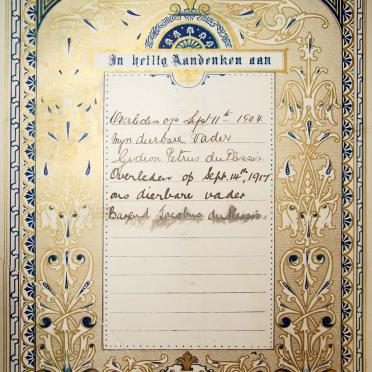 In heilig Aandenken aan
Overleden op Sept 11th 1904
Myn dierbare Vader
Gideon Petrus du Plessis
Overleden op Sept. 14th, 1917
ons dierbare vader
Barend Jacobus du Plessis.